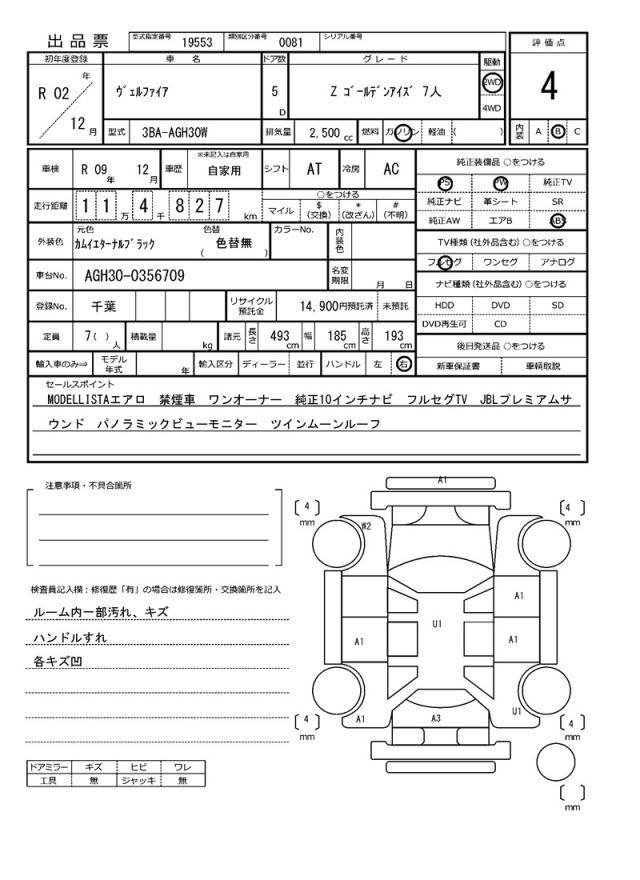 出品票 型式指定番号 19553 類別区分番号 0081 シリアル番号
評価点
初年度登録 車名 ドア数 グレード 駆動
R 02 年 12 月 ヴェルファイア 5 D Z ゴールデンアイズ 7人 2WD 4WD
4
型式 3BA-AGH30W 排気量 2,500 cc 燃料 ガソリン 軽油 ( ) 内装 A B C
車検 R 09 年 12 月 車歴 ※未記入は自家用 自家用 シフト AT 冷房 AC
純正装備品 ○をつける
PS PW 純正TV
走行距離 1 1 万 4 千 8 2 7 km ○をつける
マイル $ (交換) * (改ざん) # (不明)
純正ナビ 革シート SR
純正AW エアB ABS
外装色 元色 カムイエターナルブラック 色替 ( 色替無 ) カラーNo. 内装色
TV種類 (社外品含む) ○をつける
フルセグ ワンセグ アナログ
車台No. AGH30-0356709 名変期限 月 日
ナビ種類 (社外品含む) ○をつける
登録No. 千葉 リサイクル預託金 14,900円預託済 未預託
HDD DVD SD
DVD再生可 CD
定員 7( ) 人 積載量 kg 諸元 長さ 493 cm 幅 185 cm 高さ 193 cm
後日発送品 ○をつける
輸入車のみ⇒ モデル年式 年 輸入区分 ディーラー 並行 ハンドル 左 右
新車保証書 車輌取説
セールスポイント
MODELLISTAエアロ 禁煙車 ワンオーナー 純正10インチナビ フルセグTV JBLプレミアムサ
ウンド パノラミックビューモニター ツインムーンルーフ
注意事項・不具合箇所
A1
4 mm
4 mm
W2
検査員記入欄：修復歴「有」の場合は修復箇所・交換箇所を記入
ルーム内一部汚れ、キズ
ハンドルすれ
各キズ凹
A1
U1
A1
A1
A1 A3 U1
4 mm
4 mm
ドアミラー キズ ヒビ ワレ
工具 無 ジャッキ 無
mm